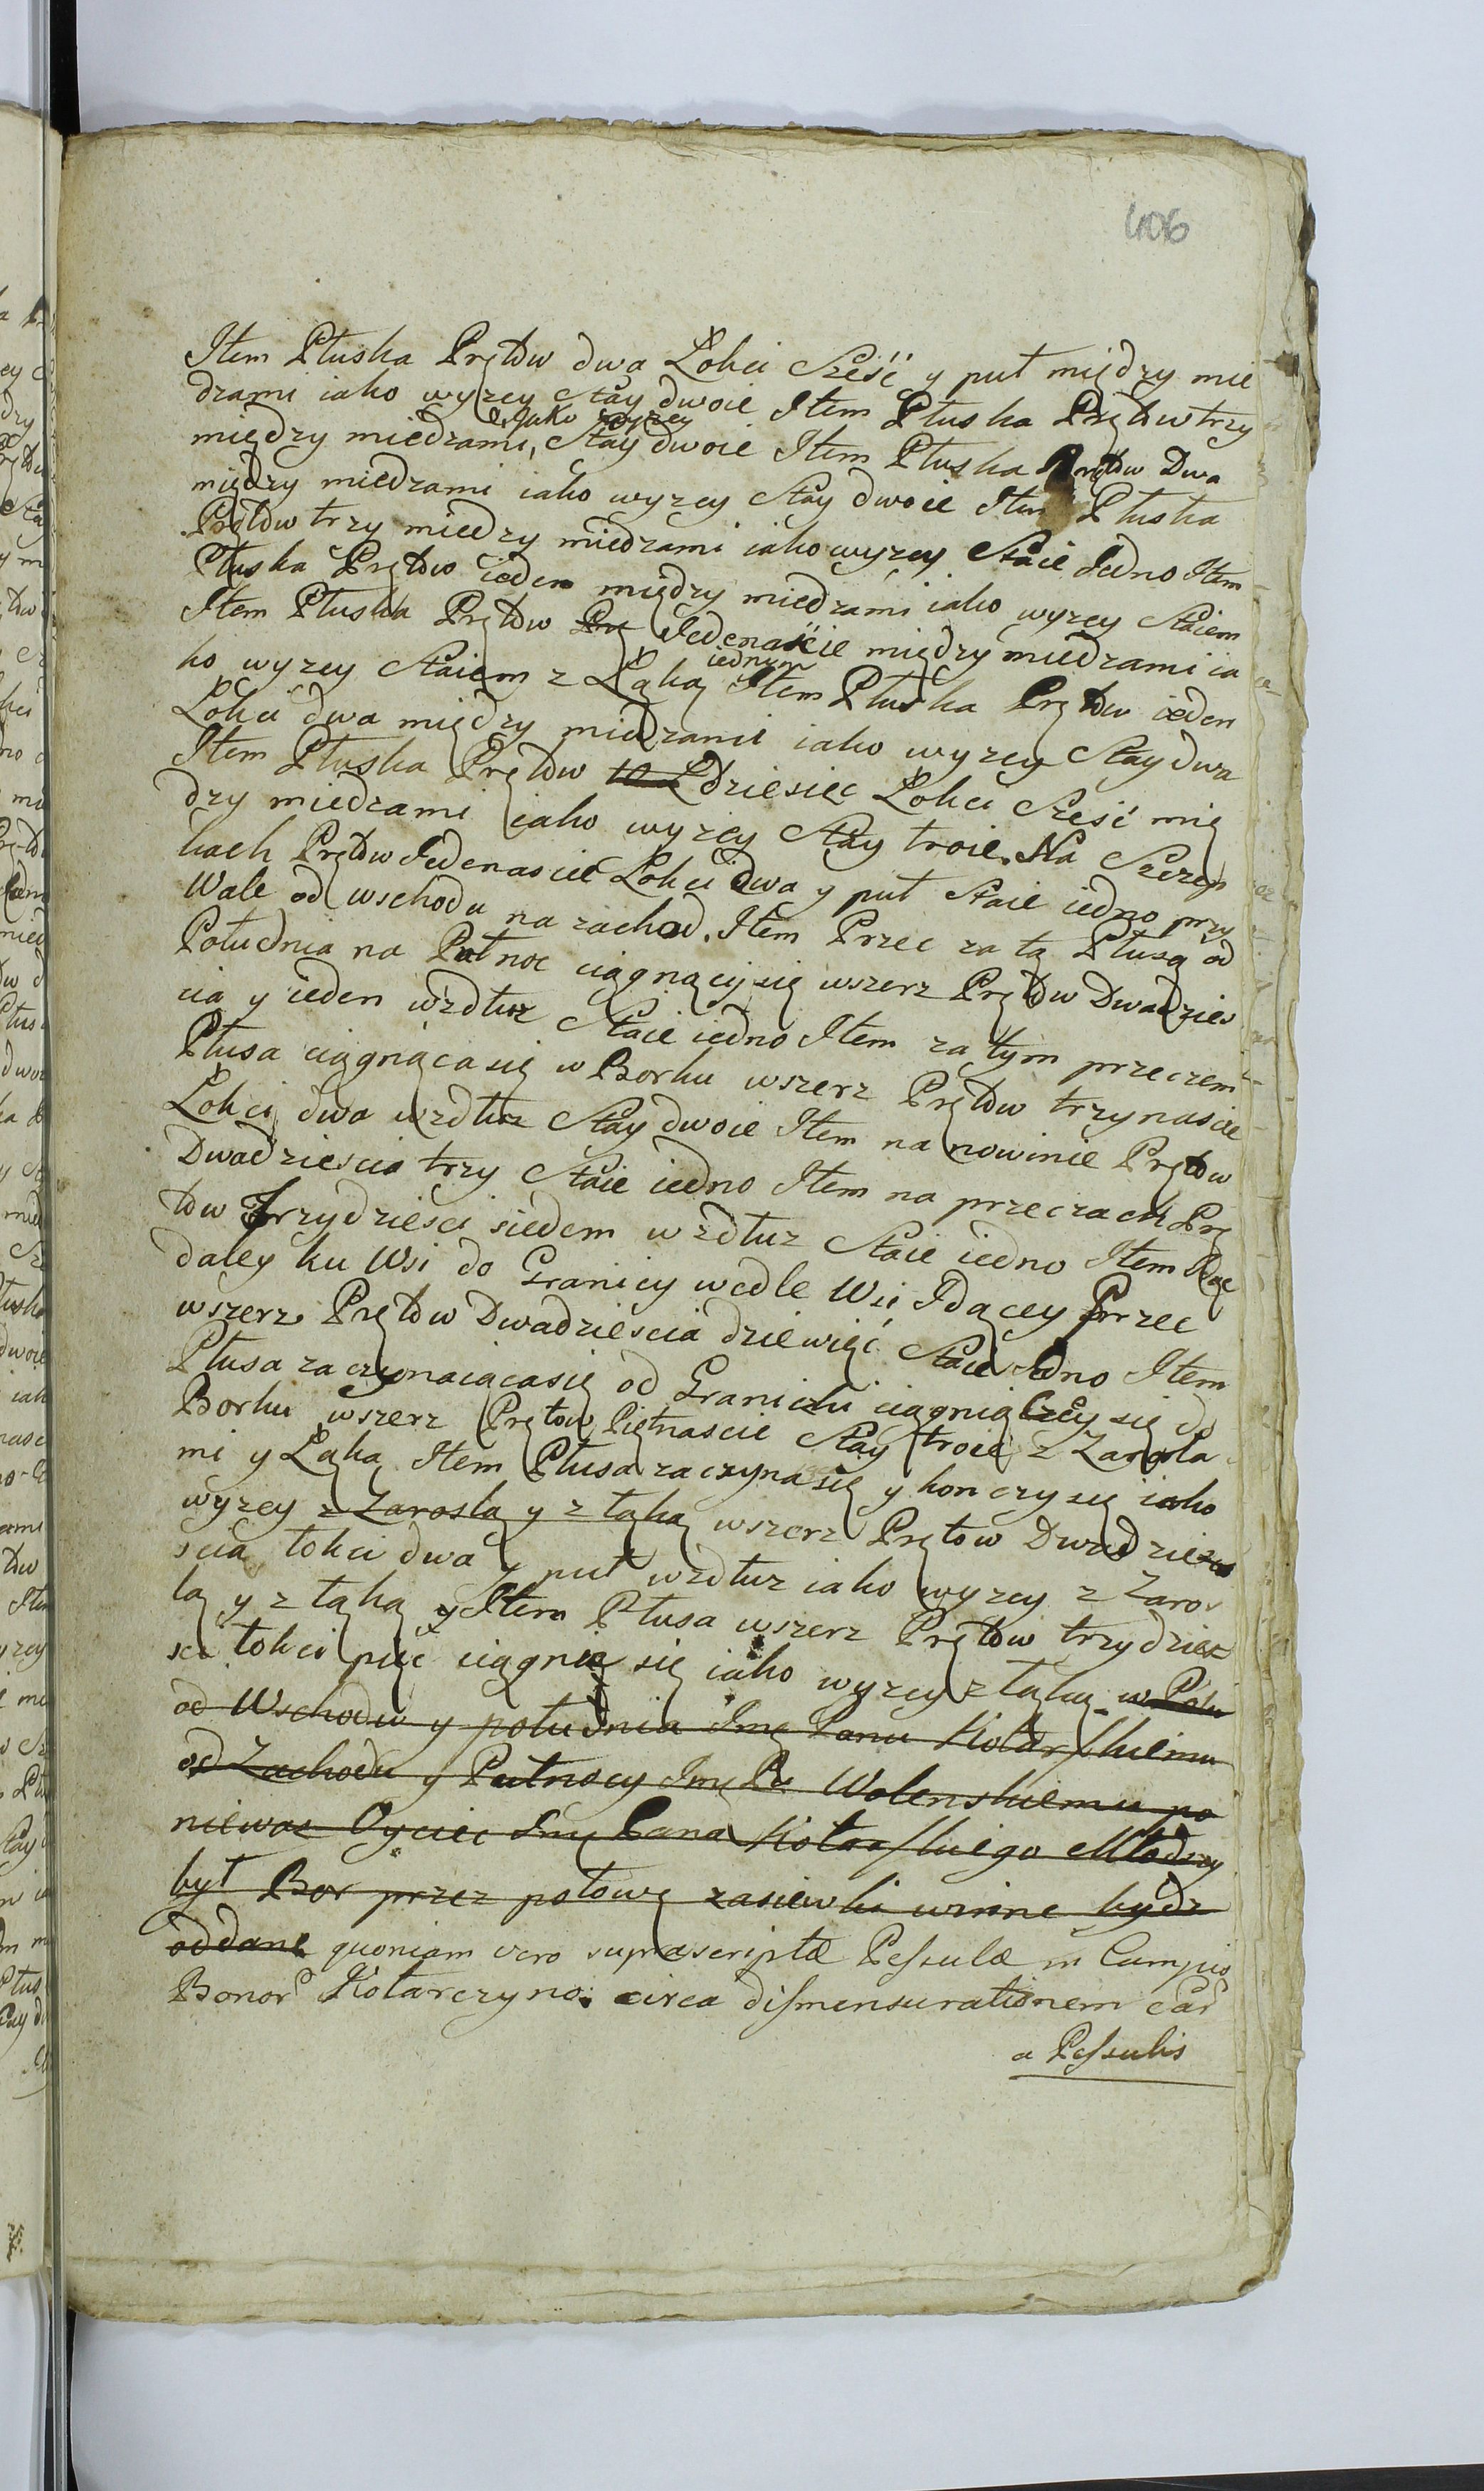 406
Item Płuska Prętow dwa Łokci Sześć y puł między mie
dzami iako wyżey Stay dwoie Item Płuska Prętow trzy
iako wyżey
między miedzami, Stay dwoie Item Płuska Prętow Dwa
między miedzami iako wyzey Stay dwoie Item Płuska
Prętow trzy miedzy miedzami iako wyzey Staie Jedno Item
Płuska Prętow ieden między miedzami iako wyzey Staiem
Item Płuska Prętow Prę Jedenaście między miedzami ia
iednym
ko wyzey Staiem z Łąką Item Płuska Prętow ieden
Łokci dwa między miedzami iako wyzey Stay dwa
Item Płuska Prętow dziesięc Łokci Sześć mię
dzy miedzami iako wyzey Stay troie. Na Szczep
kach Prętow Jedenascie Łokci dwa y puł Staie iedno przy
Wale od wschodu na zachod. Item Przec za tą Płusą od
Południa na Pułnoc ciągnącysię wszerz Prętow Dwadzies
cia y ieden wzdłuz Staie iedno Item za tym przeczem
Płusa ciągnąca się w Borku wszerz Prętow trzynascie
Łokci dwa wzdłuz Stay dwoie Item na nowinie Prętow
Dwadziescia trzy Staie iedno Item na przeczach Prę
tow Trzydziesci siedem wzdłuz Staie iedno Item
daley ku Wsi do Granicy wedle Wsi Idącey Przec
wszerz Prętow Dwadziescia dziewięć Staie Jedno Item
Płusa zaczynaiąca się od Graniczki ciągniący się do
Borku wszerz Prętow Piętnascie Stay troie z Zarosla
mi y Łąką Item Płusa zaczyna się y konczy się iako
wyzey z Zaroslą y z łąką wszerz Prętow Dwadzies
scia łokci dwa y puł wzdłuz iako wyzey z Zaros
lą y z łąką y Item Płusa wszerz Prętow trzydzies
sci łokci pięć ciągnie się iako wyzey z łąką w Polu
od Wschodu y południa Jmę Panu Kotarskiemu
od Zachodu y Pułnocy Jmę Pa Wolenskiemu po
niewaz Oyciec Jmę Pana Kotarskiego Młodszy
był Bor przez połowę zasiewki winne bydz
oddane quoniam vero suprascriptæ Pessulæ in Campis
Bonor Kotarczyno. circa dismensurationem ear
a Pessulis